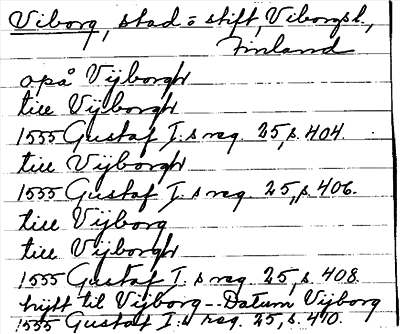 Viborg, stad o stift, Viborgsl.,
Finland
opå Vijborgh
till Vijborgh
1555 Gustaf I:s reg. 25, s. 404.
till Vijborgh
1555 Gustaf I:s reg. 25, s. 406.
till Vijborg
till Vijborgh
1555 Gustaf I:s reg. 25, s. 408.
hijtt til Vijborg -- Datum Vijborg
1555 Gustaf I:s reg. 25, s. 410.